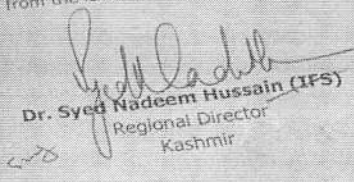 from the
Dr. Syed Nadeem Hussain (IFS)
Regional Director
Kashmir